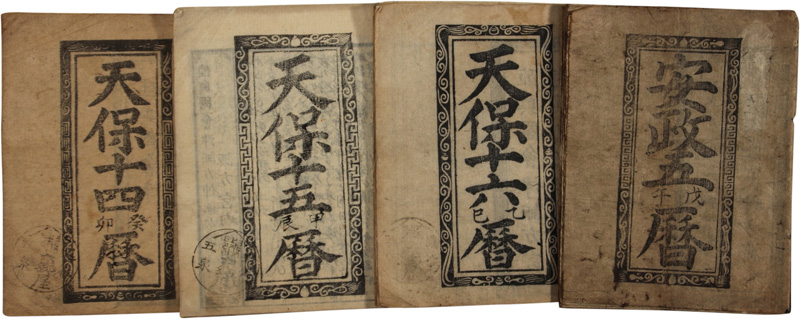 天保十四
癸卯
暦
天保十五
甲辰
暦
天保十六
乙巳
暦
安政五
戊午
暦